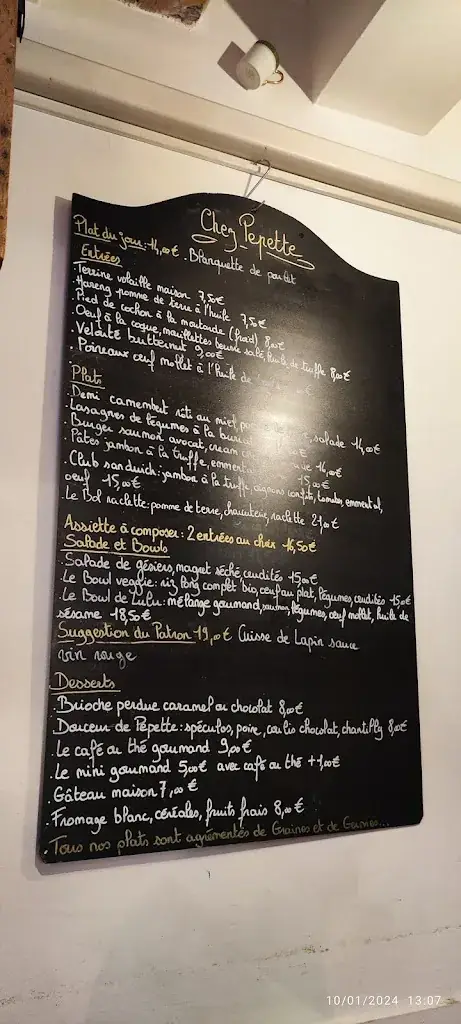 Chez Pepette
Plat du jour: 14,00€ . Blanquette de
Entrées
. Terrine volaille maison 7,50€
. Hareng pomme de terre à l'huile 7,50€
. Pied de cochon à la moutarde (froid) 8,00€
. Oeuf à la coque, mouillettes beurre salé, huile de truffe 8,00€
. Velouté butternut 9,00€
. Poireaux oeuf mollet à l'huile de
Plats
. Demi camembert roti au miel, salade 14,00€
. Lasagnes de légumes à la 14,00€
. Burger saumon avocat, cream 15,00€
. Pâtes jambon à la truffe, emmental
. Club sandwich: jambon à la truffe, oignons confits, tomates, emmental,
oeuf 15,00€
. Le Bol raclette: pomme de terre, charcuterie, raclette 21,00€
Assiette à composer: 2 entrées au choix 16,50€
Salade et Bowls
. Salade de gésiers, magret séché crudités 15,00€
. Le Bowl veggie: riz long complet bio, oeuf au plat, légumes, crudités 15,00€
. Le Bowl de Lulu: mélange gourmand, saumon, légumes, oeuf mollet, huile de
sésame 18,50€
Suggestion du Patron 19,00€ Cuisse de Lapin sauce
vin rouge
Desserts
. Brioche perdue caramel ou chocolat 8,00€
. Douceur de Pepette: spéculos, poire, coulis chocolat, chantilly 8,00€
. Le café ou thé gourmand 9,00€
. Le mini gourmand 5,00€ avec café ou thé +1,00€
. Gâteau maison 7,00€
. Fromage blanc, céréales, fruits frais 8,00€
. Tous nos plats sont agrémentés de Graines et de Germes...
10/01/2024 13:07